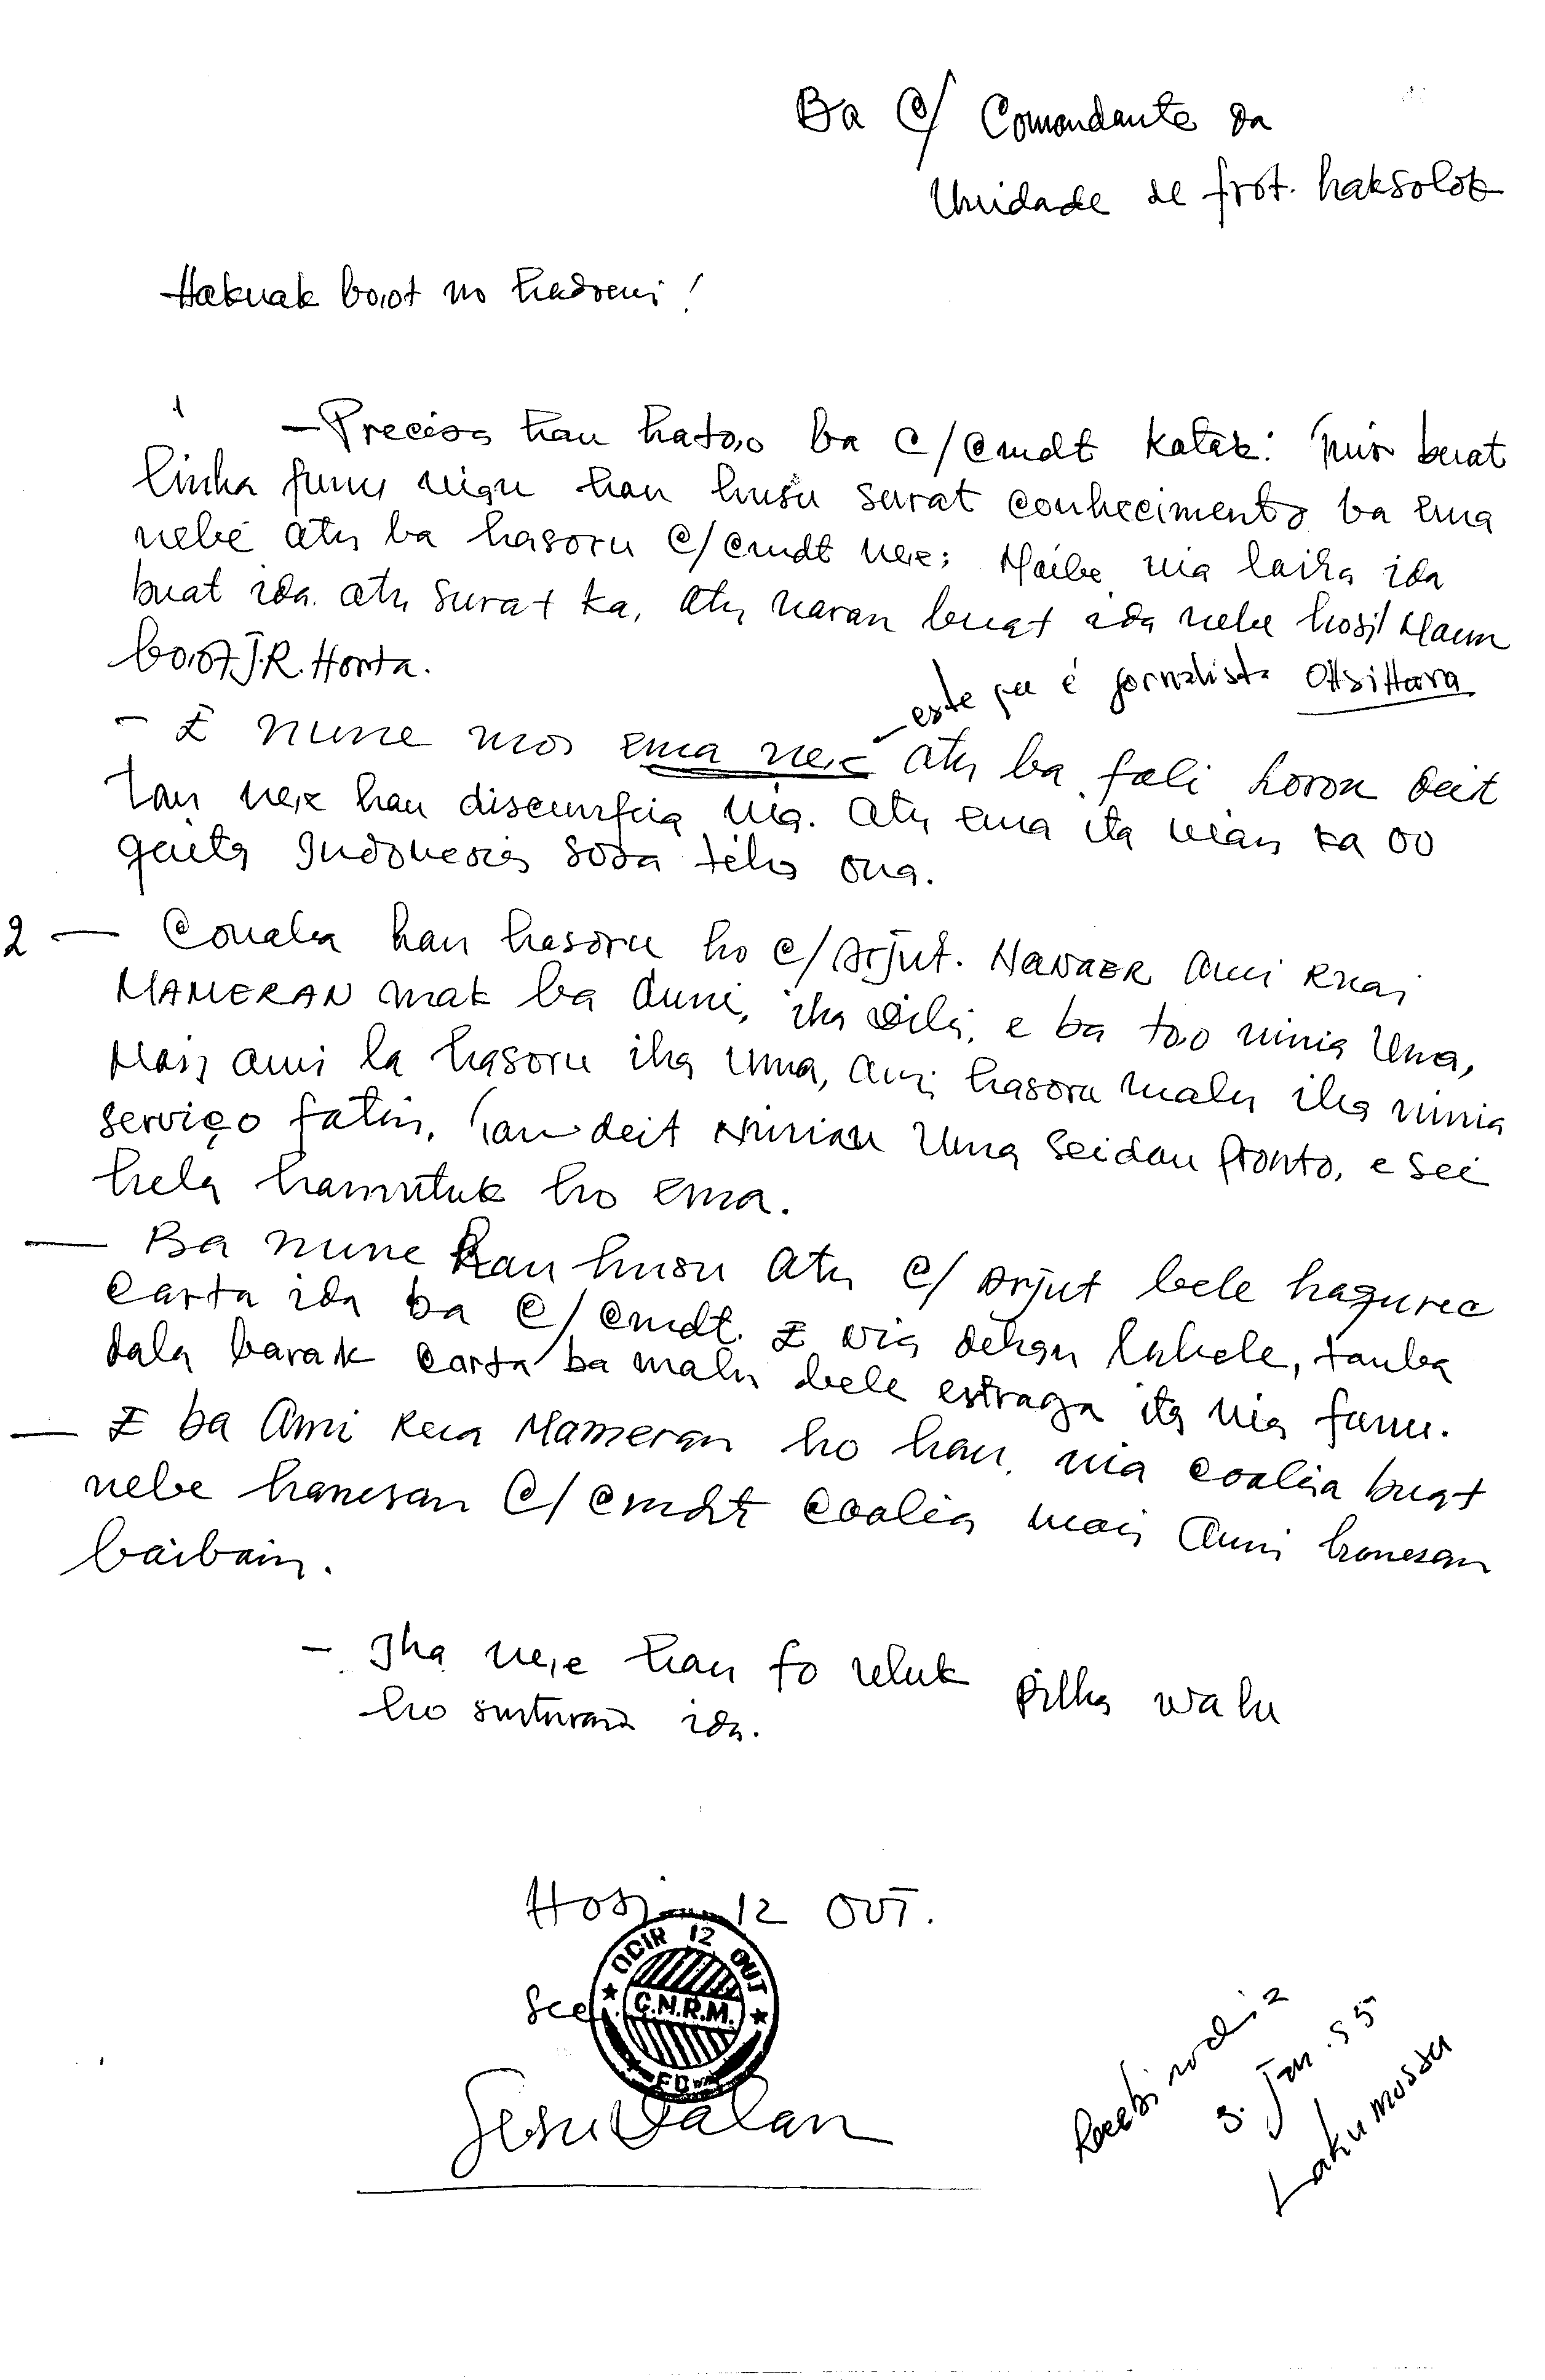 Ba C/ Comandante da
Unidade de frot. haksolok
Hakuak bo,ot no hadomi!
1 — Precisa hau hato,o ba C/Cmdt katak: tuir buat
linha funu nian hau husu surat conhecimento ba ema
nebé atu ba hasoru C/Cmdt ne,e; Maibe nia laiha ida
buat ida. atu surat ka, atu naran buat ida nebe hosi Maun
bo,ot J.R. Horta.
— este que é jornalista
– E nune mos ema ne,e atu ba fali horon deit
tan ne,e hau disconfia nia. atu ema ita nian ka oo
gaita Indonesia soda teho ona.
2 — Conaba hau hasoru ho C/Adjut. NANAER Ami Ruai
MAMERAN mak ba duni, iha Dili, e ba to,o ninia Uma,
Mais ami la hasoru iha Uma, ami hasoru malu iha ninia
serviço fatin, tan deit ninian Uma seidau pronto, e sei
hela hamutuk ho ema.
— Ba nune hau husu atu C/ Adjut bele haqurec
carta ida ba C/Cmdt. E nia dehan labele, tanba
dala barak carta ba malu bele estraga ita nia funu.
— E ba Ami Rua Mameran ho hau, nia coalia buat
nebe hanesan C/Cmdt coalia mais ami hanesan
baibain.
– Iha ne,e hau fo reluk pilha walu
ho suturada ida.
Hosi 12 OUT.
ODIR 12 OUT
C.N.R.M.
Sec
Sesu Dalan
Recebi no dia
3. Jan. 95
Lahu mosu